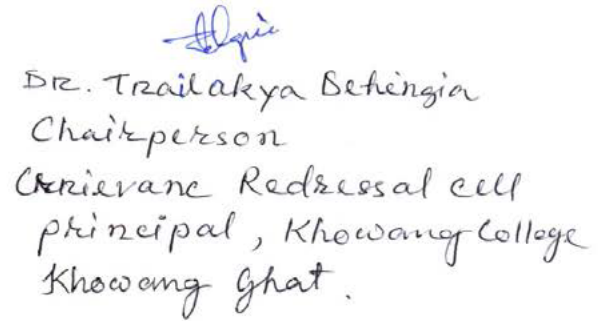 Dr. Trailakya Dehingia
Chairperson
Grievanc Redressal cell
principal, Khowang College
Khowang Ghat.